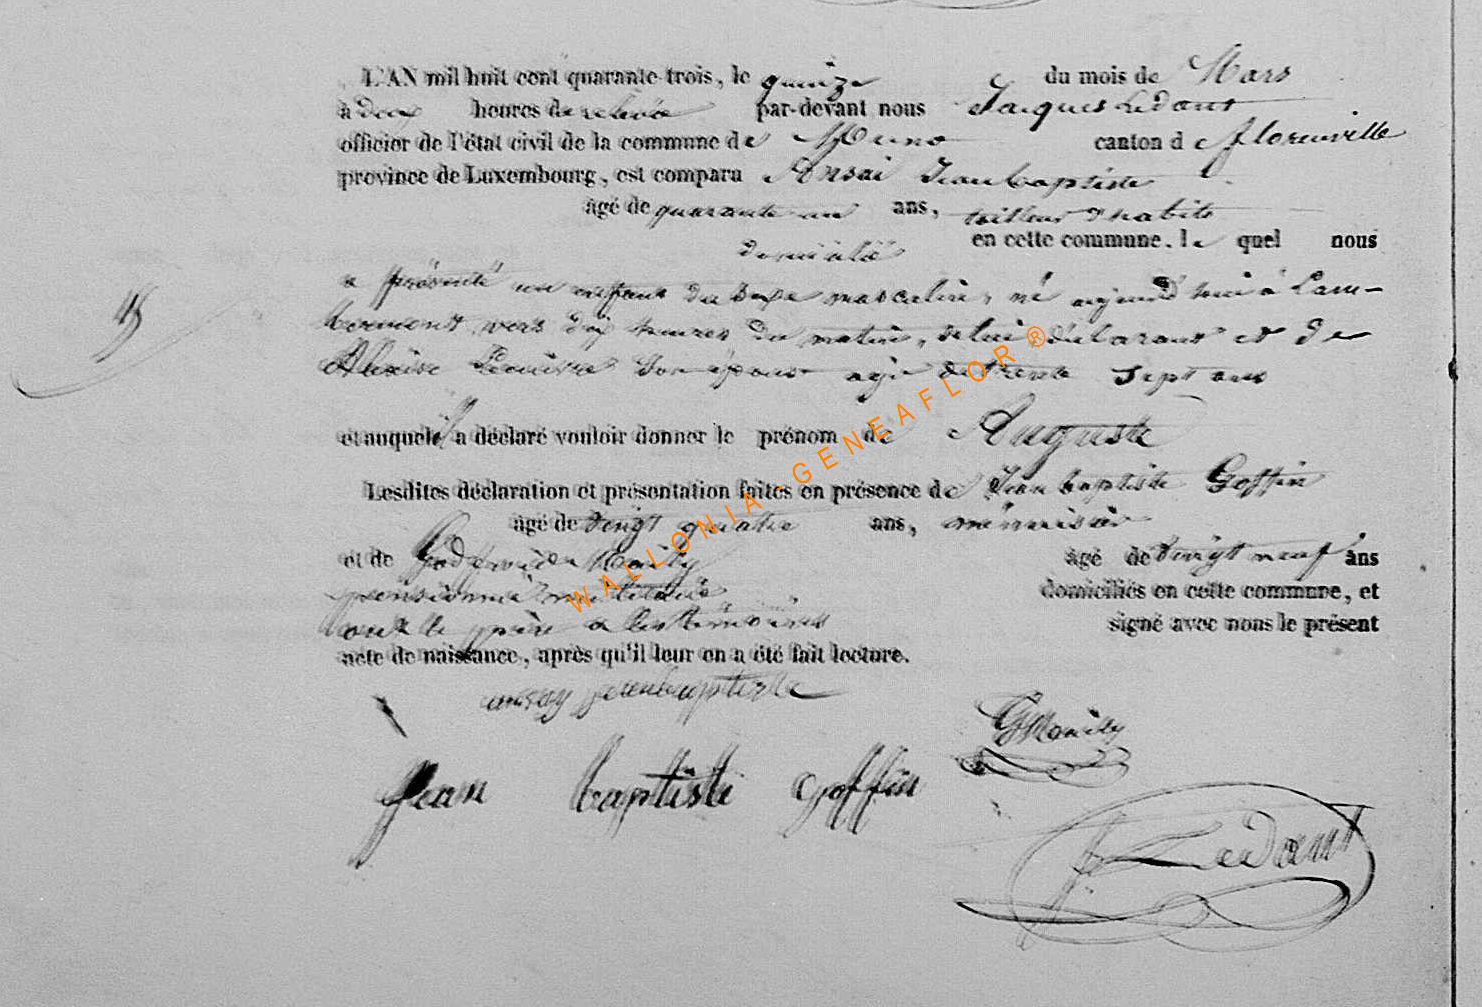 L'AN mil huit cent quarante-trois, le quinze du mois de Mars
à deux heures de relevée par-devant nous Jacques Ledant
officier de l'état civil de la commune de Muno canton de florenville
province de Luxembourg, est comparu Ansai Jean baptiste
âgé de quarante un ans, tailleur d'habits
domicilié en cette commune. le quel nous
a présenté un enfant du sexe masculin, né aujourd'hui à Lam-
bermont vers dix heures du matin, de lui déclarant et de
son épouse agée de trente sept ans
15
et auquel il a déclaré vouloir donner le prénom de Auguste
Lesdites déclaration et présentation faites en présence de Jean baptiste Goffin
âgé de vingt quatre ans, menuisier
et de âgé de vingt neuf ans
pensionné militaire domiciliés en cette commune, et
ont le père et les témoins signé avec nous le présent
acte de naissance, après qu'il leur en a été fait lecture.
ansay jeanbaptiste
Jean baptiste Goffin
J Ledant
WALLONIA-GENEAFLOR ®